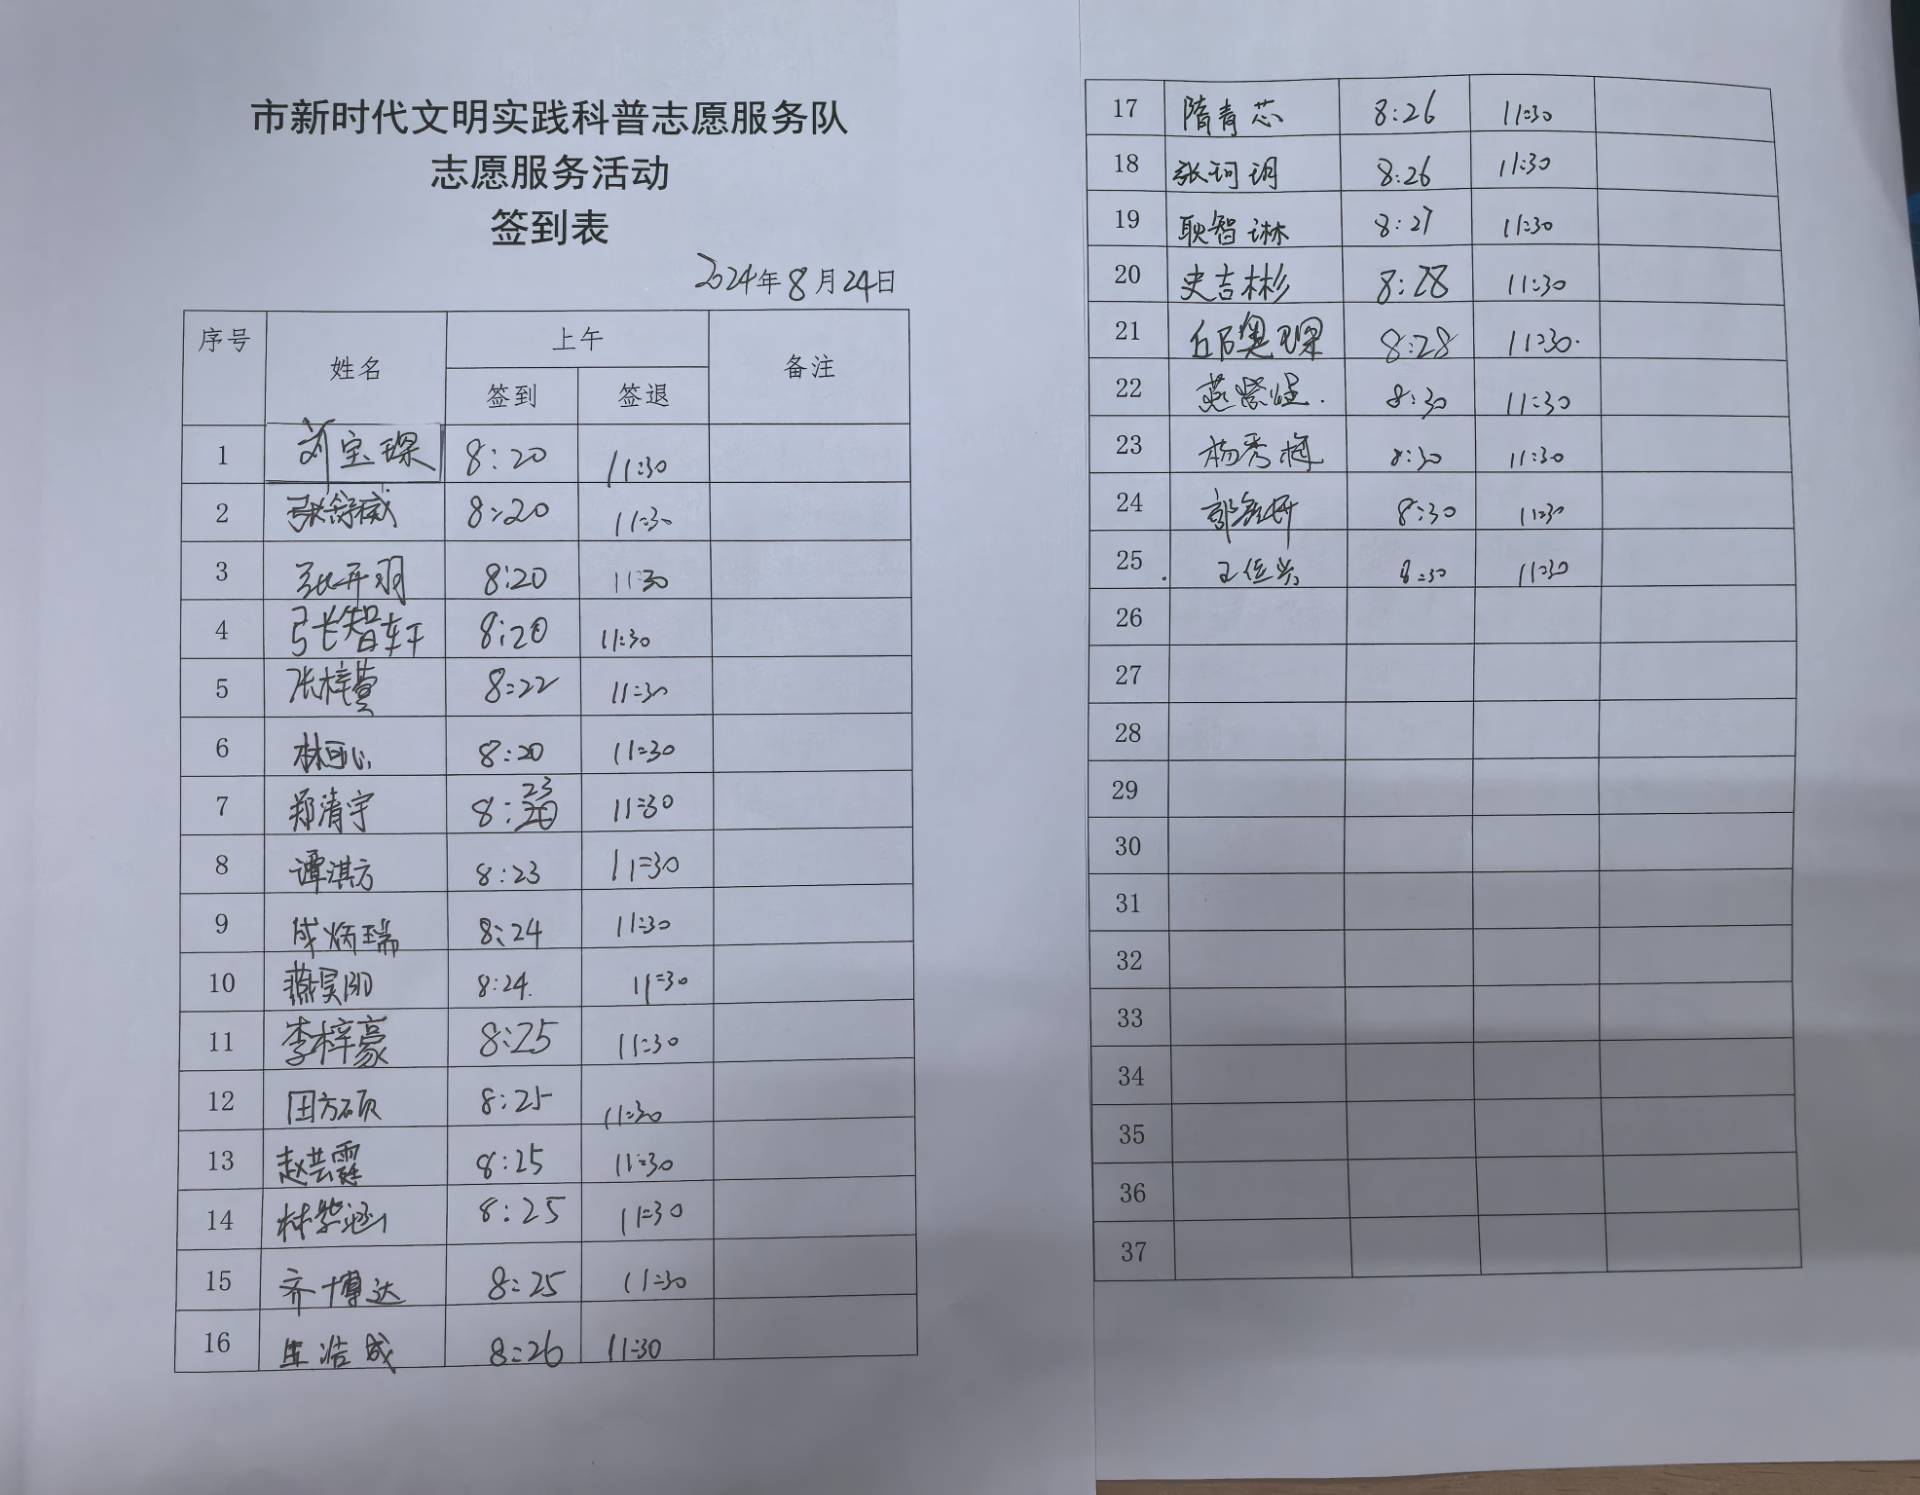 市新时代文明实践科普志愿服务队
志愿服务活动
签到表
2024年8月24日
序号 姓名 上午 备注
签到 签退
1 刘宝琛 8:20 11:30
2 张舒威 8:20 11:30
3 张开羽 8:20 11:30
4 张智轩 8:20 11:30
5 张梓萱 8:22 11:30
6 林可心 8:20 11:30
7 郑清宇 8:23 11:30
8 谭淇方 8:23 11:30
9 成炳瑞 8:24 11:30
10 燕昊阳 8:24 11:30
11 李梓豪 8:25 11:30
12 田方硕 8:25 11:30
13 赵芸霆 8:25 11:30
14 林紫涵 8:25 11:30
15 齐博达 8:25 11:30
16 生浩成 8:26 11:30
17 隋青芯 8:26 11:30
18 张珂玥 8:26 11:30
19 耿智琳 8:27 11:30
20 史吉彬 8:28 11:30
21 邱奥琛 8:28 11:30
22 燕紫 8:30 11:30
23 杨秀梅 8:30 11:30
24 郭 妍 8:30 11:30
25 王位兴 8:30 11:30
26
27
28
29
30
31
32
33
34
35
36
37